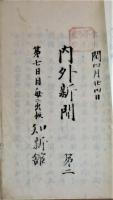 閏四月廿四日
内外新聞 第二
第七日目毎ニ出板 知新館